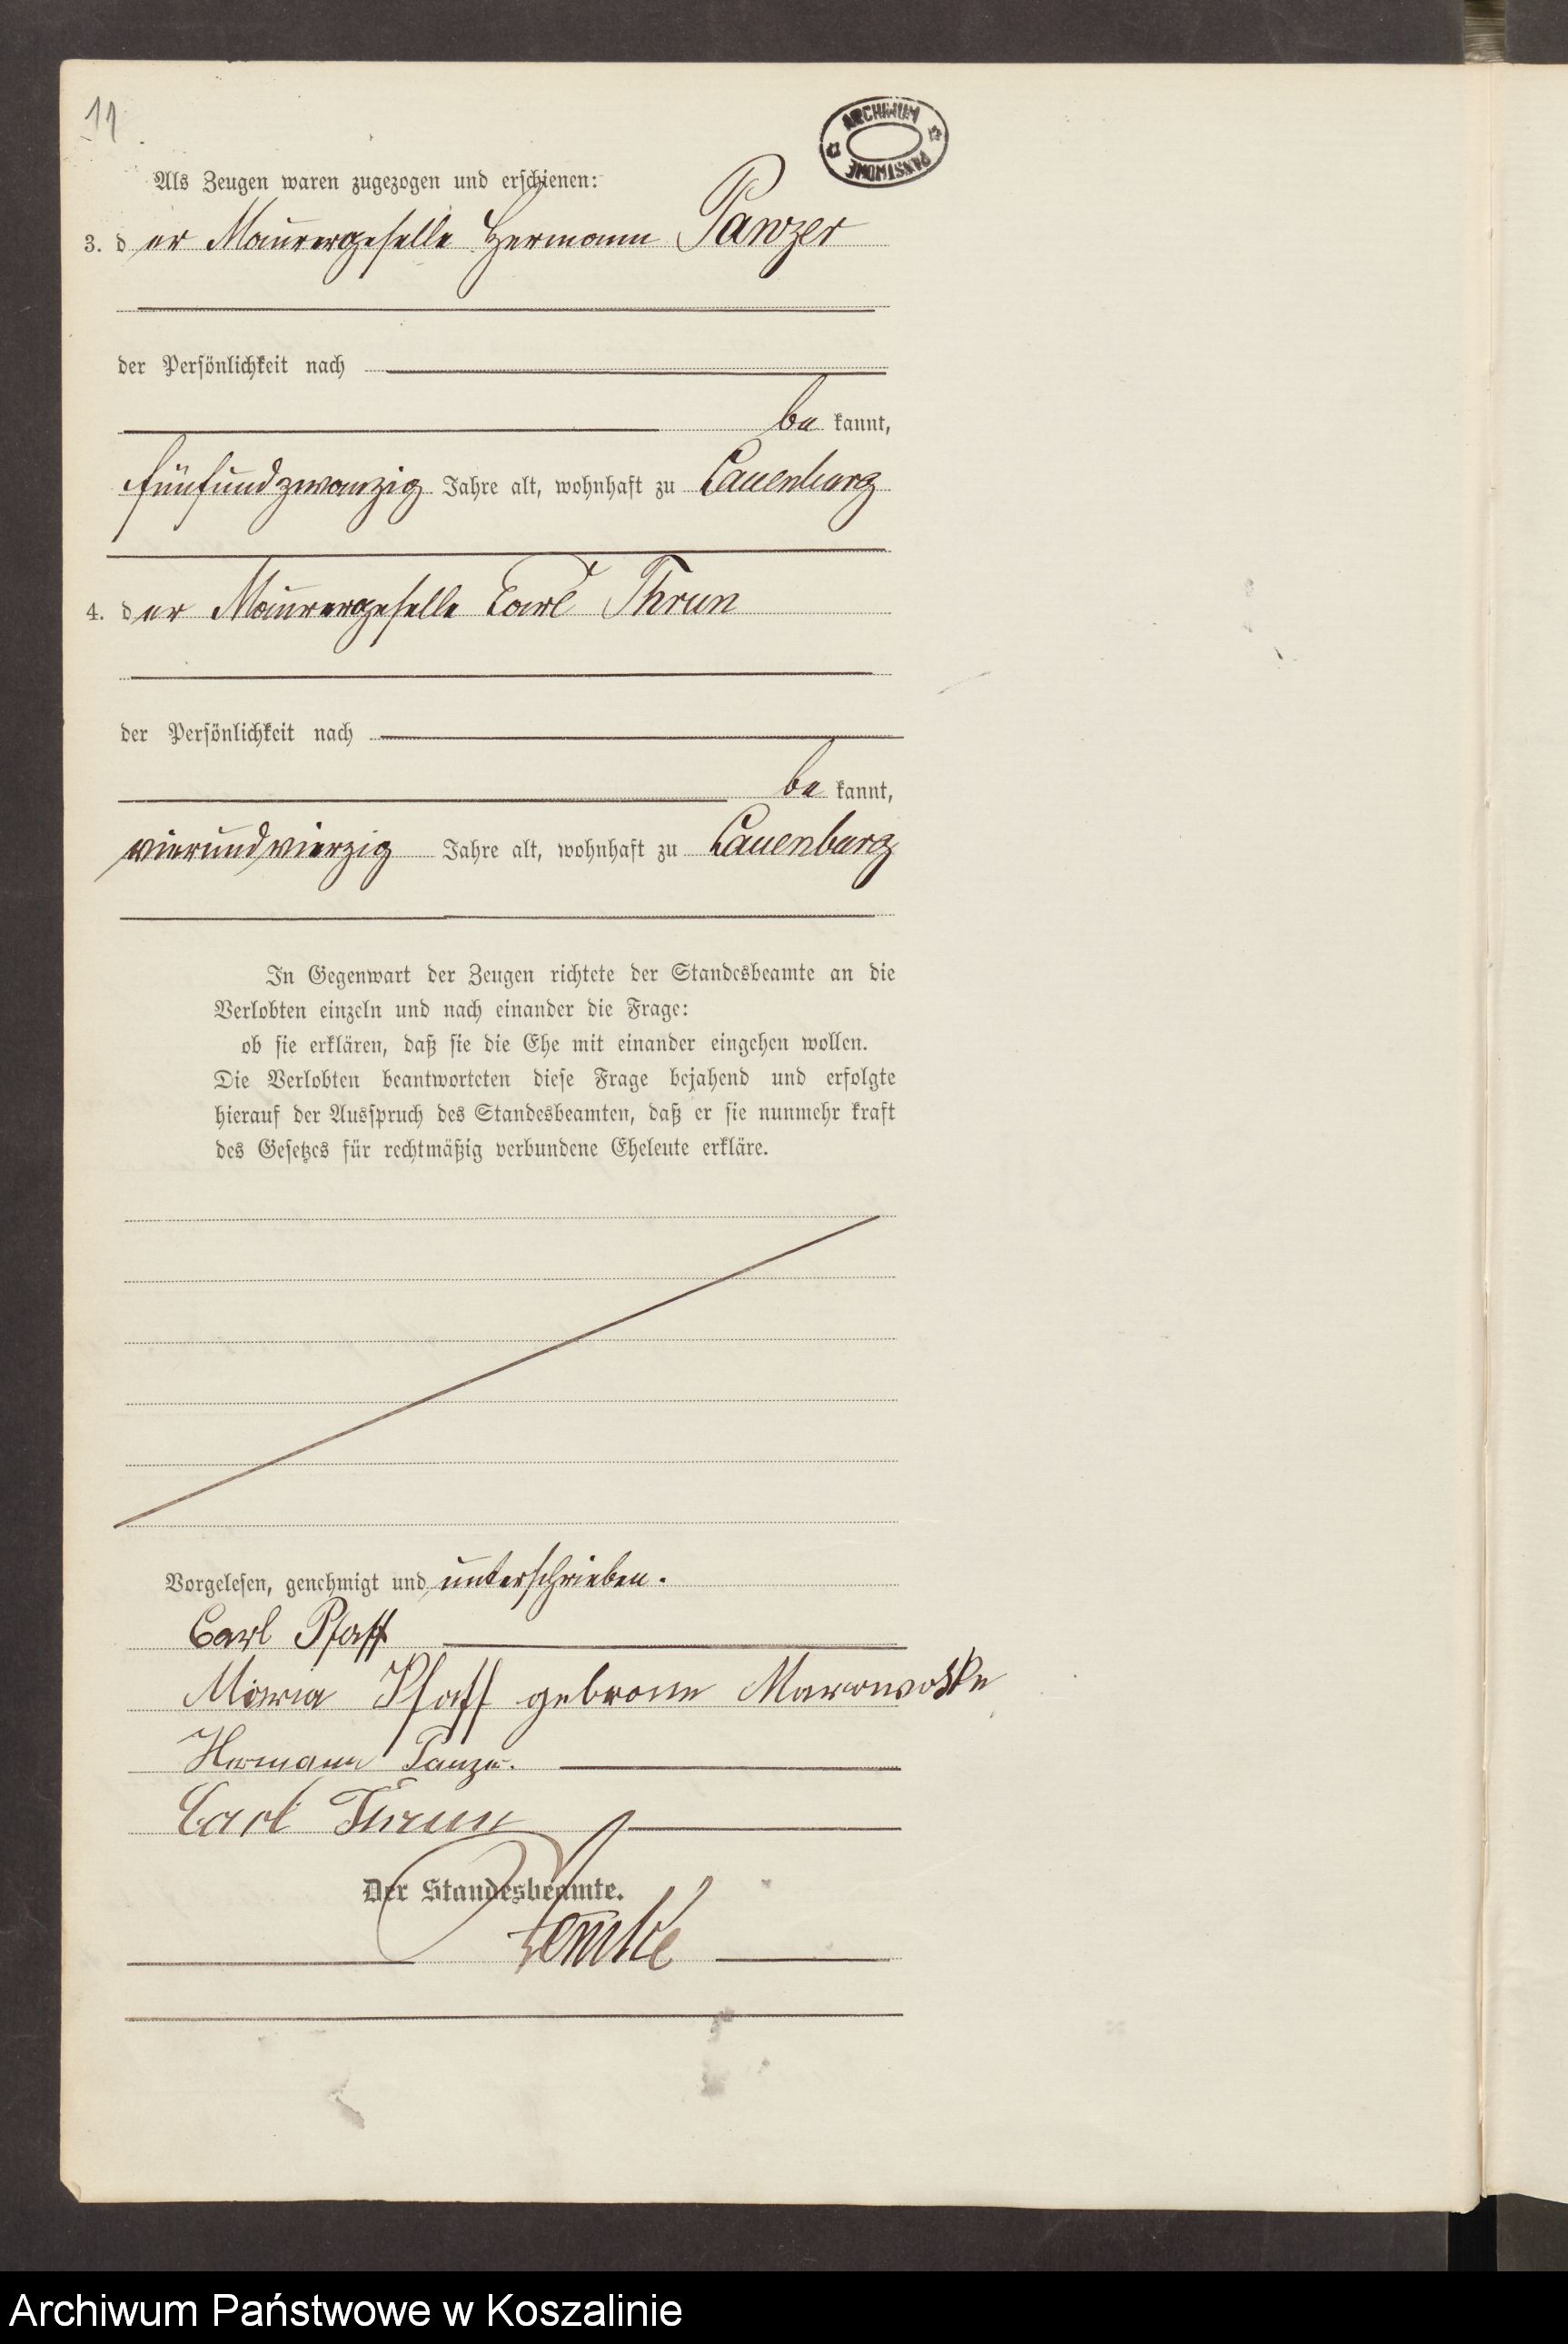 11
ARCHIWUM PAŃSTWOWE
Als Zeugen waren zugezogen und erschienen:
3. der Maurergeselle Hermann Panzer
der Persönlichkeit nach
be kannt,
fünfundzwanzig Jahre alt, wohnhaft zu Lauenburg
4. der Maurergeselle Carl Thrun
der Persönlichkeit nach
be kannt,
vierundvierzig Jahre alt, wohnhaft zu Lauenburg
In Gegenwart der Zeugen richtete der Standesbeamte an die
Verlobten einzeln und nach einander die Frage:
ob sie erklären, daß sie die Ehe mit einander eingehen wollen.
Die Verlobten beantworteten diese Frage bejahend und erfolgte
hierauf der Ausspruch des Standesbeamten, daß er sie nunmehr kraft
des Gesetzes für rechtmäßig verbundene Eheleute erkläre.
Vorgelesen, genehmigt und unterschrieben.
Carl Pfaff
Maria Pfaff
Hermann Panzer.
Carl Thrun
Der Standesbeamte.
Archiwum Państwowe w Koszalinie